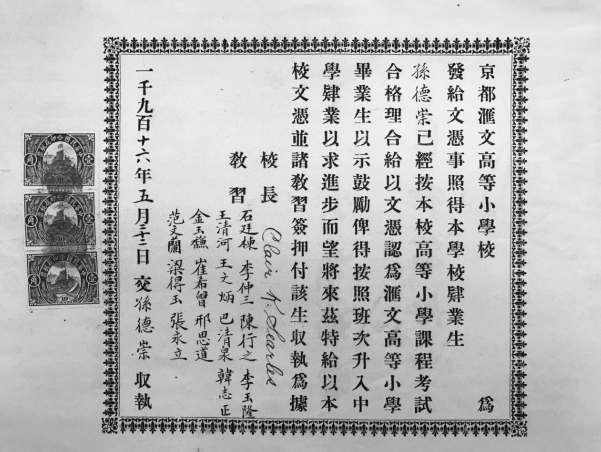 京都滙文高等小學校 為
發給文憑事照得本學校肄業生
孫德崇已經按本校高等小學課程考試
合格理合給以文憑認為滙文高等小學
畢業生以示鼓勵俾得按照班次升入中
學肄業以求進步而望將來茲特給以本
校文憑並諸教習簽押付該生收執為據
校長
教習
石廷棟 李仲三 陳行之 李玉隆
王清河 王之炳 巴清泉 韓志正
金玉 崔希曾 邢思道
范文蘭 梁得玉 張永立
一千九百十六年五月三十二日 交孫德崇 收執